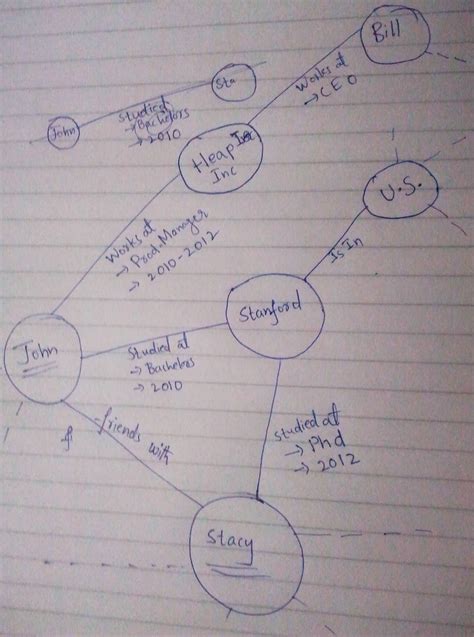 Bill
Works at
→ CEO
Sta
John
Studied
→ Bachelors
→ 2010
Heap
Inc
U.S.
Works at
→ Prod.Manager
→ 2010-2012
Is In
Stanford
John
Studied at
→ Bachelors
→ 2010
friends with
Studied at
→ Phd
→ 2012
Stacy